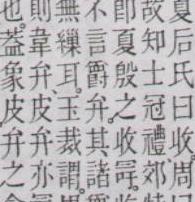 夏后氏曰收周
故知士冠禮郊
卽夏殷之收冔
不言爵弁其諸
無繅耳玉弁裁謂
則韋弁皮弁亦
也葢象皮弁之